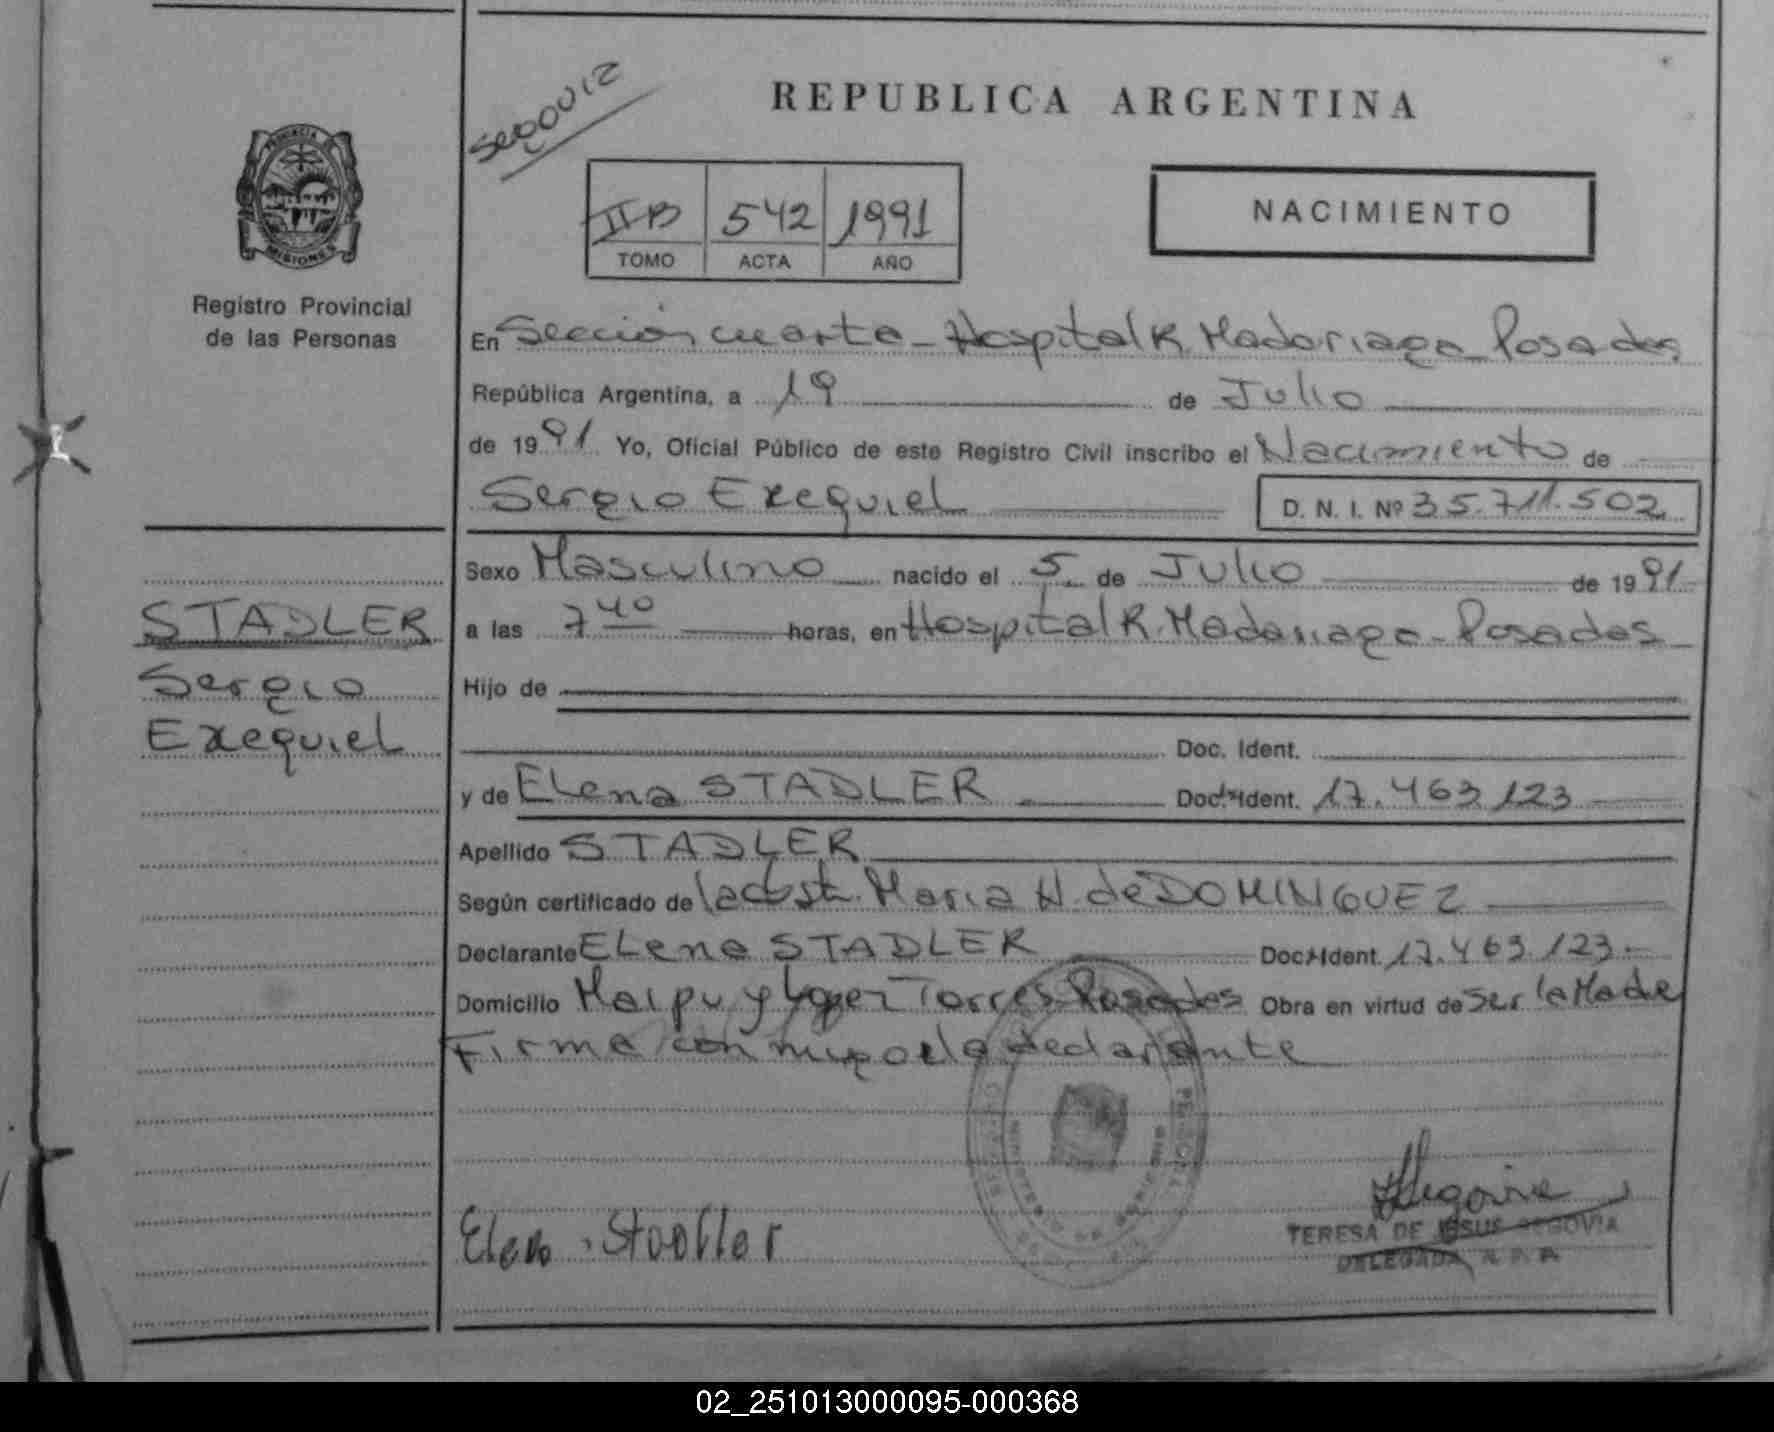 REPUBLICA ARGENTINA
PROVINCIA DE
MISIONES
Registro Provincial
de las Personas
IIB 542 1991
TOMO ACTA AÑO
NACIMIENTO
En Sección cuarta - Hospital R. Madariaga Posadas
República Argentina, a 19 de Julio
de 1991 Yo, Oficial Público de este Registro Civil inscribo el Nacimiento de
Sergio Exequiel D. N. I. Nº 35.711.502
STADLER
Sergio
Exequiel
Sexo Masculino nacido el 5 de Julio de 1991
a las 7 40 horas, en Hospital R. Madariaga - Posadas
Hijo de
Doc. Ident.
y de Elena STADLER Doc. Ident. 17.463.123
Apellido STADLER
Según certificado de la obst. Maria N. de DOMINGUEZ
Declarante Elena STADLER Doc. Ident. 17.463.123
Domicilio Maipu y Lopez Torres Posadas Obra en virtud de ser la Madre
Firma con migo la declarante
Elena Stadler
TERESA DE JESUS SEGOVIA
DELEGADA R. P. P.
02_251013000095-000368